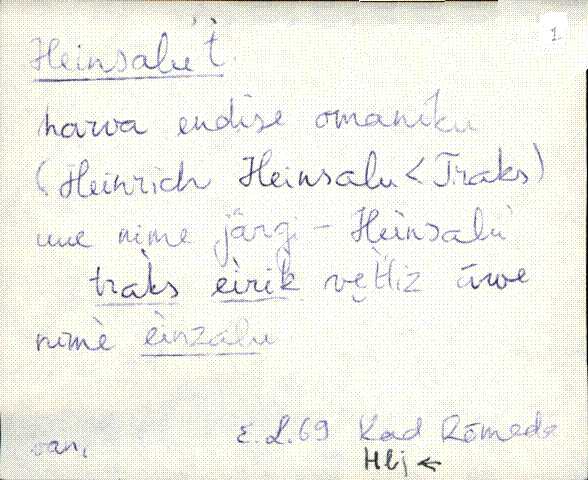 1
Heinsalu't
harva endise omaniku
(Heinrich Heinsalu < Traks)
uue nime järgi – Heinsalu
traks eìrik vęttiz ūwe
nimè èinzalu
van. E.L.69 Kad Rõmeda
Hlj ←